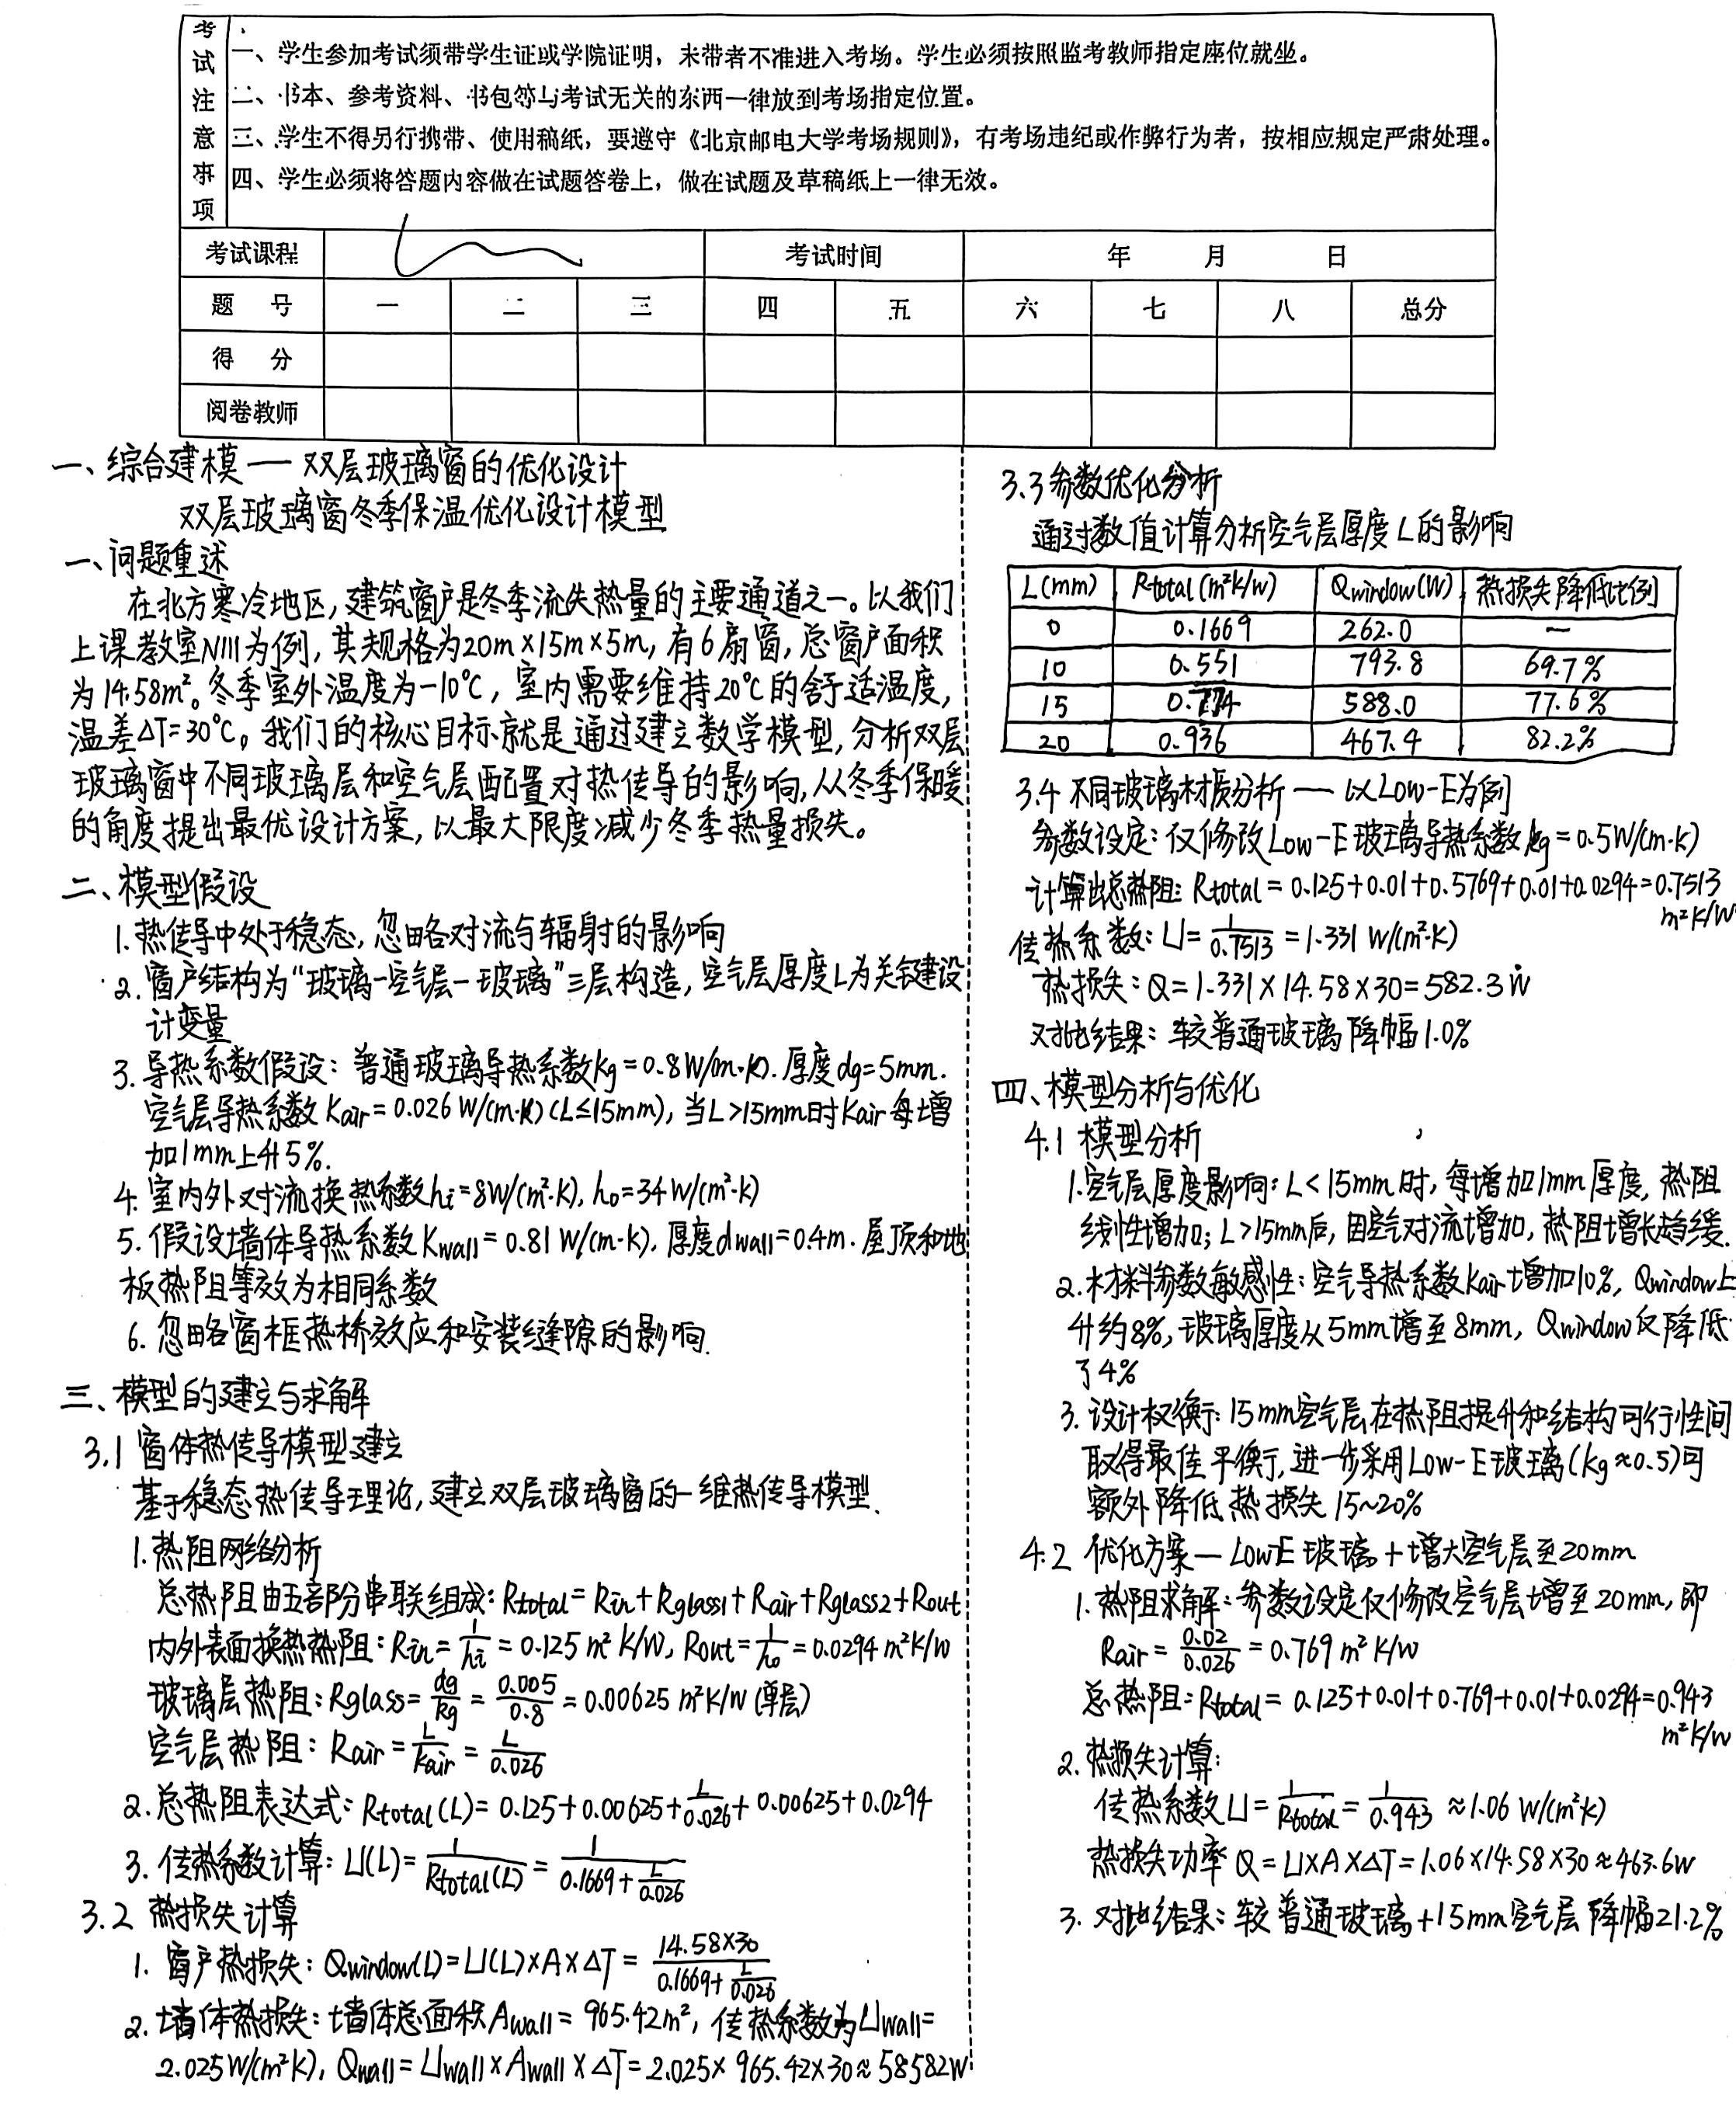 考试注意事项
一、学生参加考试须带学生证或学院证明，未带者不准进入考场。学生必须按照监考教师指定座位就坐。
二、书本、参考资料、书包等与考试无关的东西一律放到考场指定位置。
三、学生不得另行携带、使用稿纸，要遵守《北京邮电大学考场规则》，有考场违纪或作弊行为者，按相应规定严肃处理。
四、学生必须将答题内容做在试题答卷上，做在试题及草稿纸上一律无效。
考试课程 考试时间 年 月 日
题 号 一 二 三 四 五 六 七 八 总分
得 分
阅卷教师
一、综合建模 — 双层玻璃窗的优化设计
双层玻璃窗冬季保温优化设计模型
一、问题重述
在北方寒冷地区，建筑窗户是冬季流失热量的主要通道之一。以我们
上课教室N111为例，其规格为20m×15m×5m，有6扇窗，总窗户面积
为14.58m²。冬季室外温度为-10℃，室内需要维持20℃的舒适温度，
温差ΔT=30℃。我们的核心目标就是通过建立数学模型，分析双层
玻璃窗中不同玻璃层和空气层配置对热传导的影响，从冬季保暖
的角度提出最优设计方案，以最大限度减少冬季热量损失。
二、模型假设
1.热传导中处于稳态，忽略对流与辐射的影响
2.窗户结构为“玻璃-空气层-玻璃”三层构造，空气层厚度L为关键建设
计变量
3.导热系数假设：普通玻璃导热系数kg=0.8W/(m·K).厚度dg=5mm.
空气层导热系数Kair=0.026W/(m·K)(L≤15mm)，当L>15mm时Kair每增
加1mm上升5%.
4.室内外对流换热系数hi=8W/(m²·K), ho=34W/(m²·K)
5.假设墙体导热系数Kwall=0.81W/(m·K).厚度dwall=0.4m.屋顶和地
板热阻等效为相同系数
6.忽略窗框热桥效应和安装缝隙的影响.
三、模型的建立与求解
3.1 窗体热传导模型建立
基于稳态热传导理论，建立双层玻璃窗的一维热传导模型.
1.热阻网络分析
总热阻由五部分串联组成：Rtotal=Rin+Rglass1+Rair+Rglass2+Rout
内外表面换热热阻：Rin=1/hi=0.125m²K/W, Rout=1/ho=0.0294m²K/W
玻璃层热阻：Rglass=dg/kg=0.005/0.8=0.00625m²K/W(单层)
空气层热阻：Rair=L/Kair=L/0.026
2.总热阻表达式：Rtotal(L)=0.125+0.00625+L/0.026+0.00625+0.0294
3.传热系数计算：U(L)=1/Rtotal(L)=1/(0.1669+L/0.026)
3.2 热损失计算
1.窗户热损失：Qwindow(L)=U(L)×A×ΔT=14.58×30/(0.1669+L/0.026)
2.墙体热损失：墙体总面积Awall=965.42m²，传热系数为Uwall=
2.025W/(m²K), Qwall=Uwall×Awall×ΔT=2.025×965.42×30≈58582W
3.3参数优化分析
通过数值计算分析空气层厚度L的影响
L(mm) Rtotal(m²K/W) Qwindow(W) 热损失降低比例
0 0.1669 262.0 —
10 0.551 793.8 69.7%
15 0.774 588.0 77.6%
20 0.936 467.4 82.2%
3.4 不同玻璃材质分析 — 以Low-E为例
参数设定：仅修改Low-E玻璃导热系数kg=0.5W/(m·K)
计算出总热阻：Rtotal=0.125+0.01+0.5769+0.01+0.0294=0.7513
m²K/W
传热系数：U=1/0.7513=1.331 W/(m²·K)
热损失：Q=1.331×14.58×30=582.3W
对比结果：较普通玻璃降幅1.0%
四、模型分析与优化
4.1 模型分析
1.空气层厚度影响：L<15mm时，每增加1mm厚度，热阻
线性增加；L>15mm后，因空气对流增加，热阻增长趋缓.
2.材料参数敏感性：空气导热系数Kair增加10%，Qwindow上
升约8%，玻璃厚度从5mm增至8mm，Qwindow仅降低
了4%
3.设计权衡：15mm空气层在热阻提升和结构可行性间
取得最佳平衡，进一步采用Low-E玻璃(kg≈0.5)可
额外降低热损失15~20%
4.2 优化方案—LowE玻璃+增大空气层至20mm
1.热阻求解：参数设定仅修改空气层增至20mm，即
Rair=0.02/0.026=0.769m²K/W
总热阻：Rtotal=0.125+0.01+0.769+0.01+0.0294=0.943
m²K/W
2.热损失计算：
传热系数U=1/Rtotal=1/0.943≈1.06W/(m²K)
热损失功率Q=U×A×ΔT=1.06×14.58×30≈463.6W
3.对比结果：较普通玻璃+15mm空气层降幅21.2%